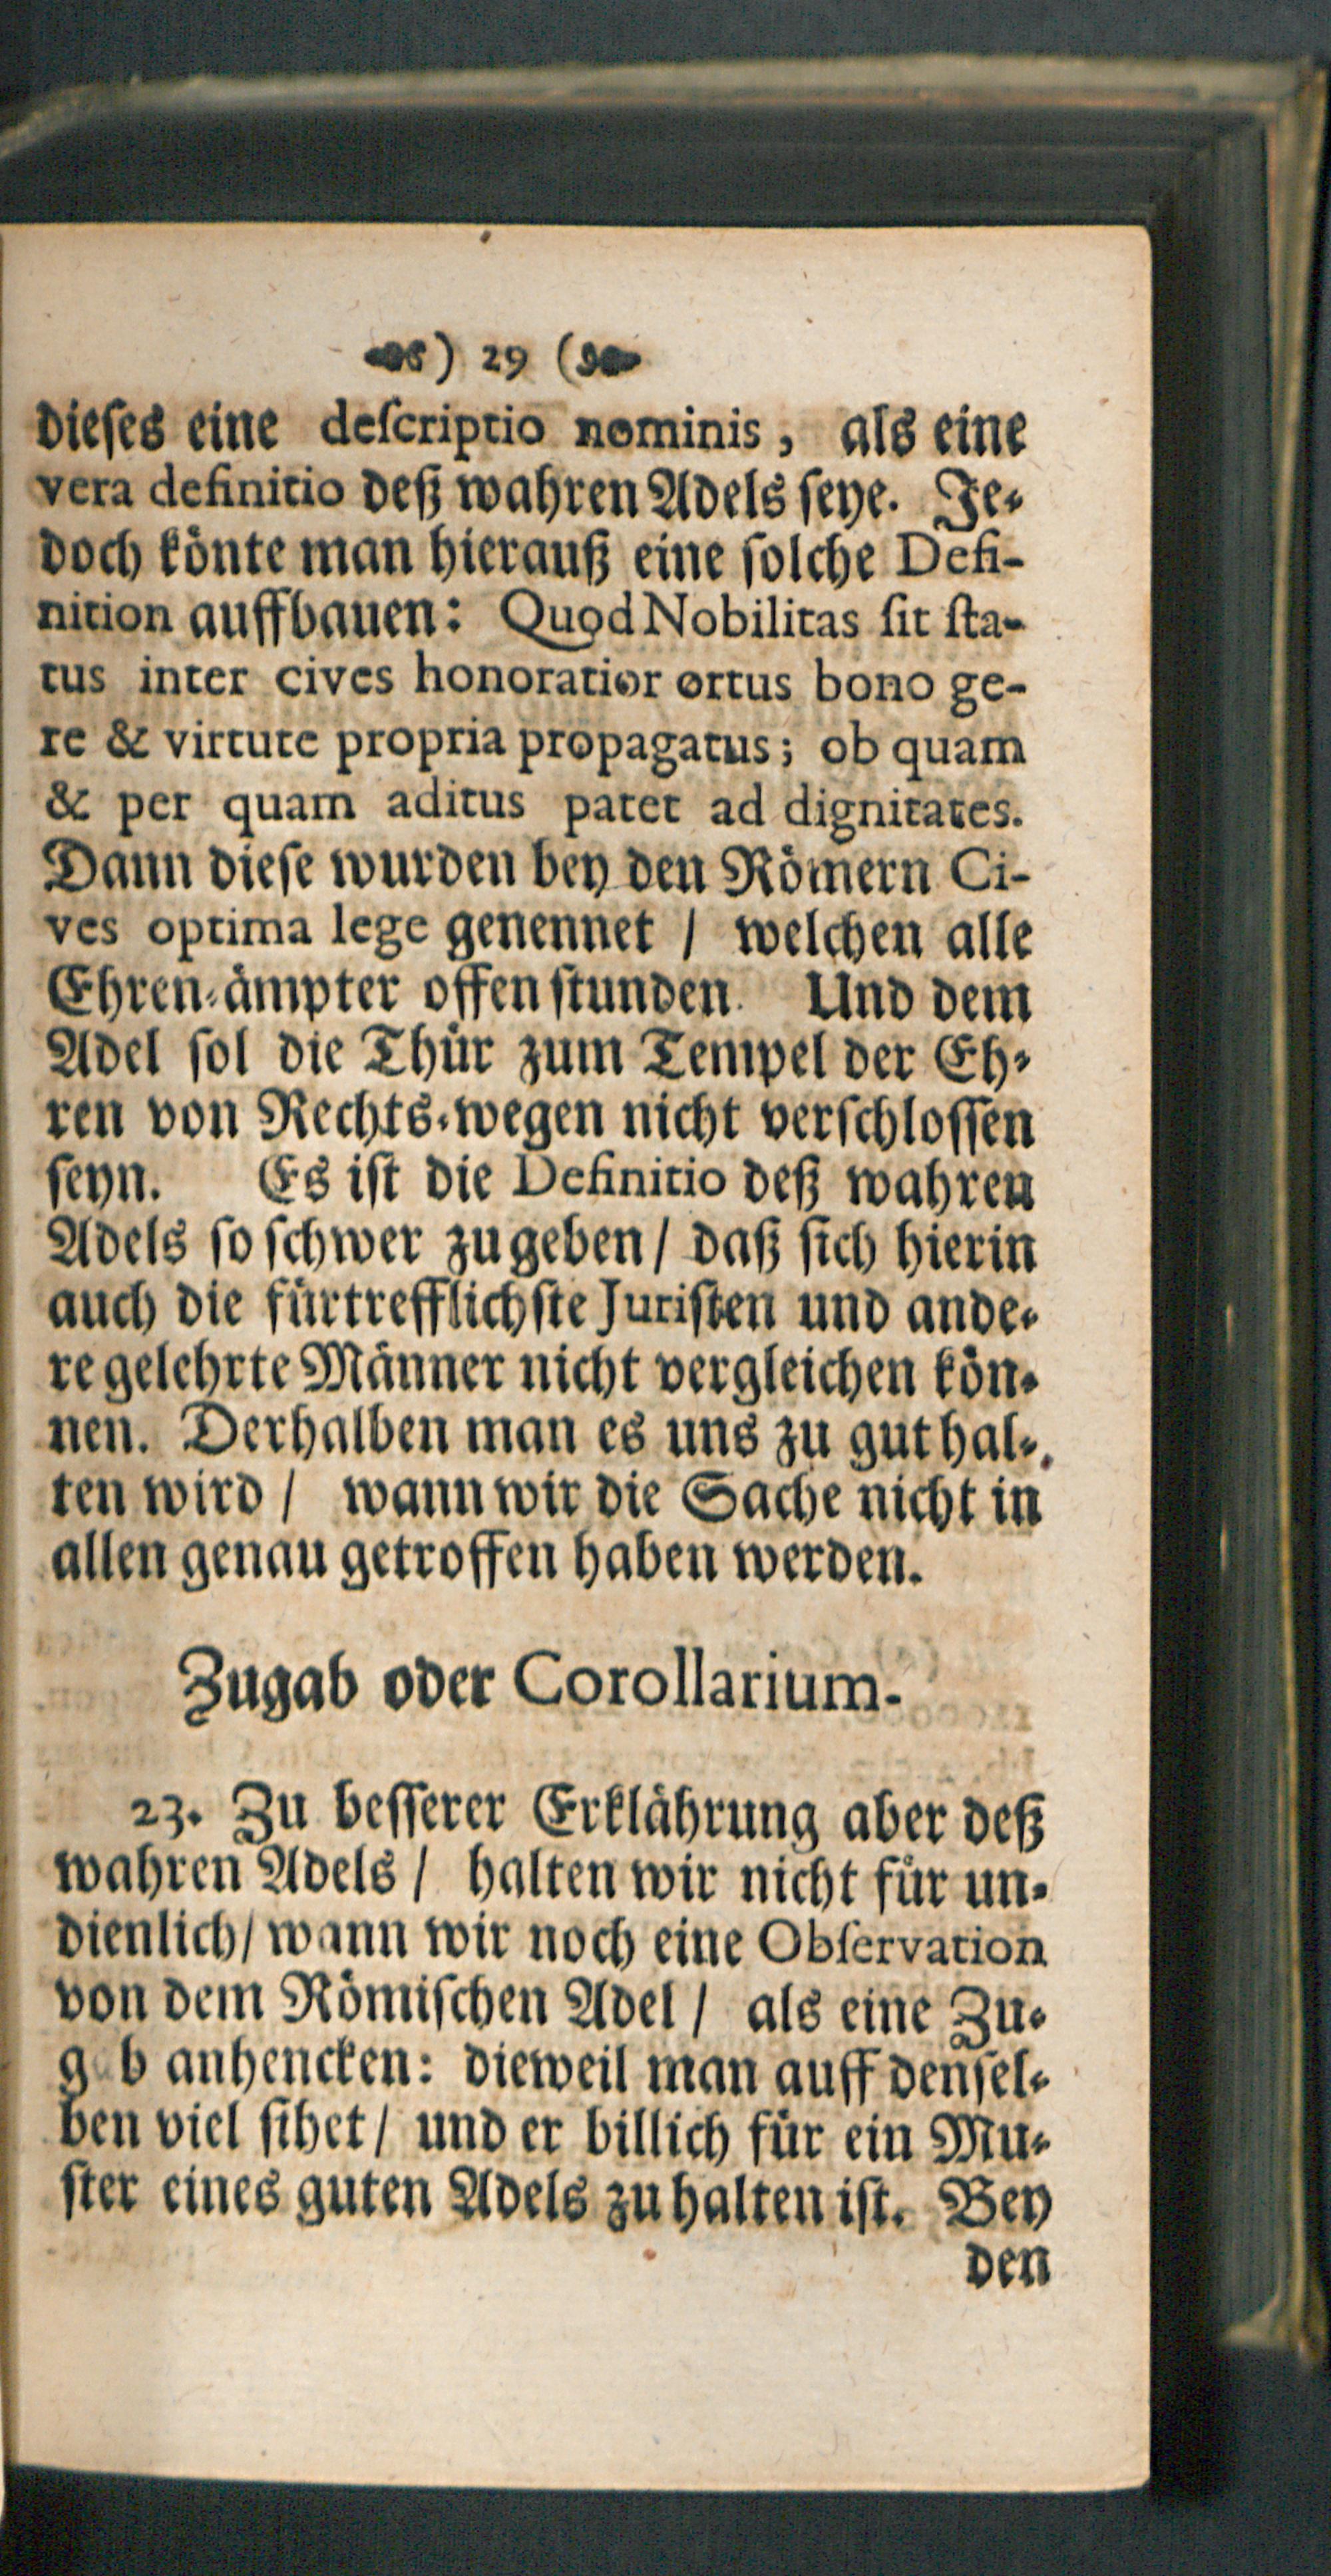 ) 29 (
dieſes eine deſcriptio nominis, als eine
vera definitio deß wahren Adels ſeye. Je-
doch könte man hierauß eine ſolche Defi-
nition auffbauen: Quod Nobilitas ſit ſta-
tus inter cives honoratior ortus bono ge-
re & virtute propria propagatus; ob quam
& per quam aditus patet ad dignitates.
Dann dieſe wurden bey den Römern Ci-
ves optima lege genennet / welchen alle
Ehren-ämpter offen ſtunden. Und dem
Adel ſol die Thür zum Tempel der Eh-
ren von Rechts-wegen nicht verſchloſſen
ſeyn. Es iſt die Definitio deß wahren
Adels ſo ſchwer zu geben / daß ſich hierin
auch die fürtrefflichſte Juriſten und ande-
re gelehrte Männer nicht vergleichen kön-
nen. Derhalben man es uns zu gut hal-
ten wird / wann wir die Sache nicht in
allen genau getroffen haben werden.
Zugab oder Corollarium.
23. Zu beſſerer Erklährung aber deß
wahren Adels / halten wir nicht für un-
dienlich / wann wir noch eine Obſervation
von dem Römiſchen Adel / als eine Zu-
g b anhencken: dieweil man auff denſel-
ben viel ſihet / und er billich für ein Mu-
ſter eines guten Adels zu halten iſt. Bey
den